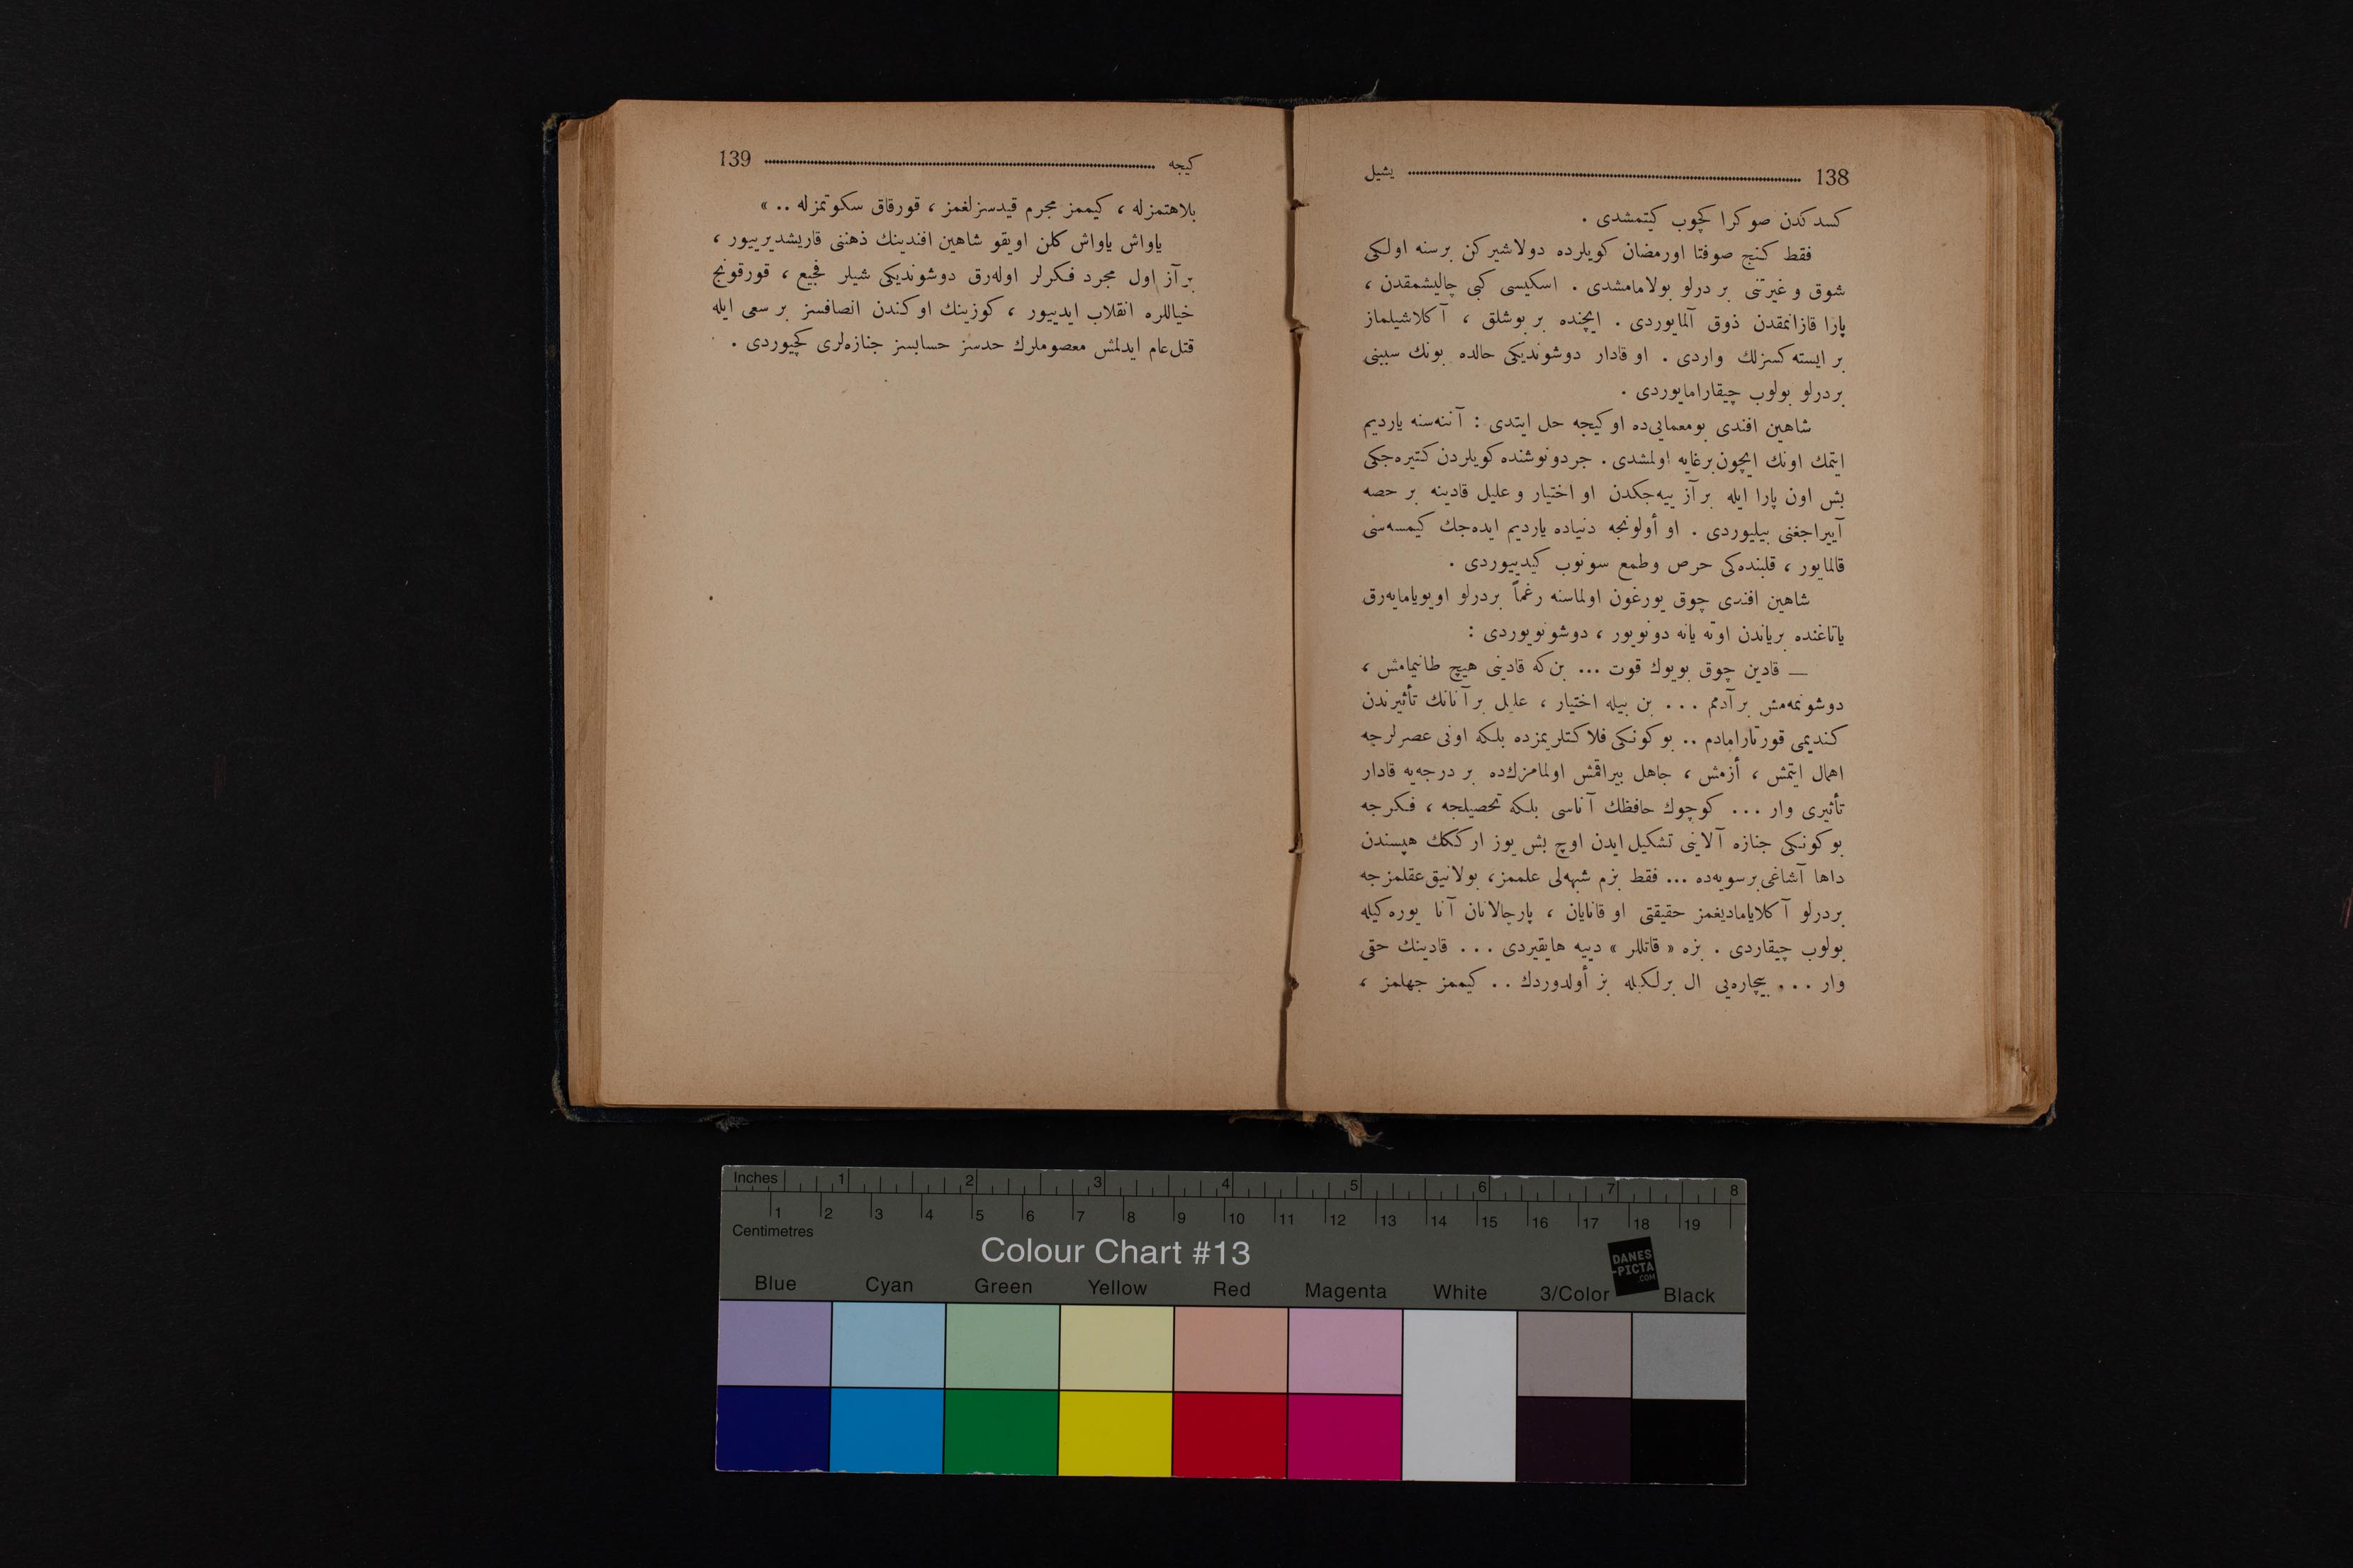 138 یشیل
كسدكدن صوكرا كچوب كیتمشدی .
فقط كنج صوفتا اورمضان كویلرده دولاشیركن برسنه اولكی
شوق و غیرتنی بر درلو بولامامشدی . اسكیسی كبی چالیشمقدن ،
پارا قازانمقدن ذوق آلمایوردی . ایچنده بر بوشلق ، آكلاشیلماز
بر ایسته كسزلك واردی . او قادار دوشوندیكی حالده بونك سببنی
بردرلو بولوب چیقارامایوردی .
شاهین افندی بومعمایی‌ده اوكیجه حل ایتدی : آننه‌سنه یاردیم
ایتمك اونك ایچون برغایه اولمشدی . جردونوشنده كویلردن كتیره‌جكی
بش اون پارا ایله بر آز ییه‌جكدن او اختیار و علیل قادینه بر حصه
آییراجغنی بیلیوردی . او أولونجه دنیاده یاردیم ایده‌جك كیمسه‌سی
قالمایور ، قلبنده‌كی حرص وطمع سونوب كیدییوردی .
شاهین افندی چوق یورغون اولماسنه رغماً بردرلو اویویامایه‌رق
یاتاغنده بریاندن اوته یانه دونویور ، دوشونویوردی :
— قادین چوق بویوك قوت ... بن‌كه قادینی هیچ طانیمامش ،
دوشونمه‌مش بر آدمم ... بن بیله اختیار ، علیل بر آنانك تأثیرندن
كندیمی قورتارامادم .. بوكونكی فلاكتلریمزده بلكه اونی عصرلرجه
اهمال ایتمش ، أزمش ، جاهل بیراقمش اولمامزك‌ده بر درجه‌یه قادار
تأثیری وار ... كوچوك حافظك آناسی بلكه تحصیلجه ، فكرجه
بوكونكی جنازه آلاینی تشكیل ایدن اوچ بش یوز ارككك هپسندن
داها آشاغی برسویه‌ده ... فقط بزم شبهه‌لی علممز ، بولانیق عقلمزجه
بردرلو آكلایامادیغمز حقیقتی او قانایان ، پارچالانان آنا یوره‌كیله
بولوب چیقاردی . بزه « قاتللر » دییه هایقیردی ... قادینك حقی
وار ... بیچاره‌یی ال برلكیله بز أولدوردك .. كیممز جهلمز ،
كیجه 139
بلاهتمزله ، كیممز مجرم قیدسزلغمز ، قورقاق سكوتمزله .. »
یاواش یاواش كلن اویقو شاهین افندینك ذهننی قاریشدیرییور ،
بر آز اول مجرد فكرلر اوله‌رق دوشوندیكی شیلر فجیع ، قورقونج
خیاللره انقلاب ایدییور ، كوزینك اوكندن انصافسز بر سعی ایله
قتل‌عام ایدلمش معصوملرك حدسز حسابسز جنازه‌لری كچیوردی .
Inches 1 2 3 4 5 6 7 8
1 2 3 4 5 6 7 8 9 10 11 12 13 14 15 16 17 18 19
Centimetres
Colour Chart #13
DANES
-PICTA
.COM
Blue Cyan Green Yellow Red Magenta White 3/Color Black